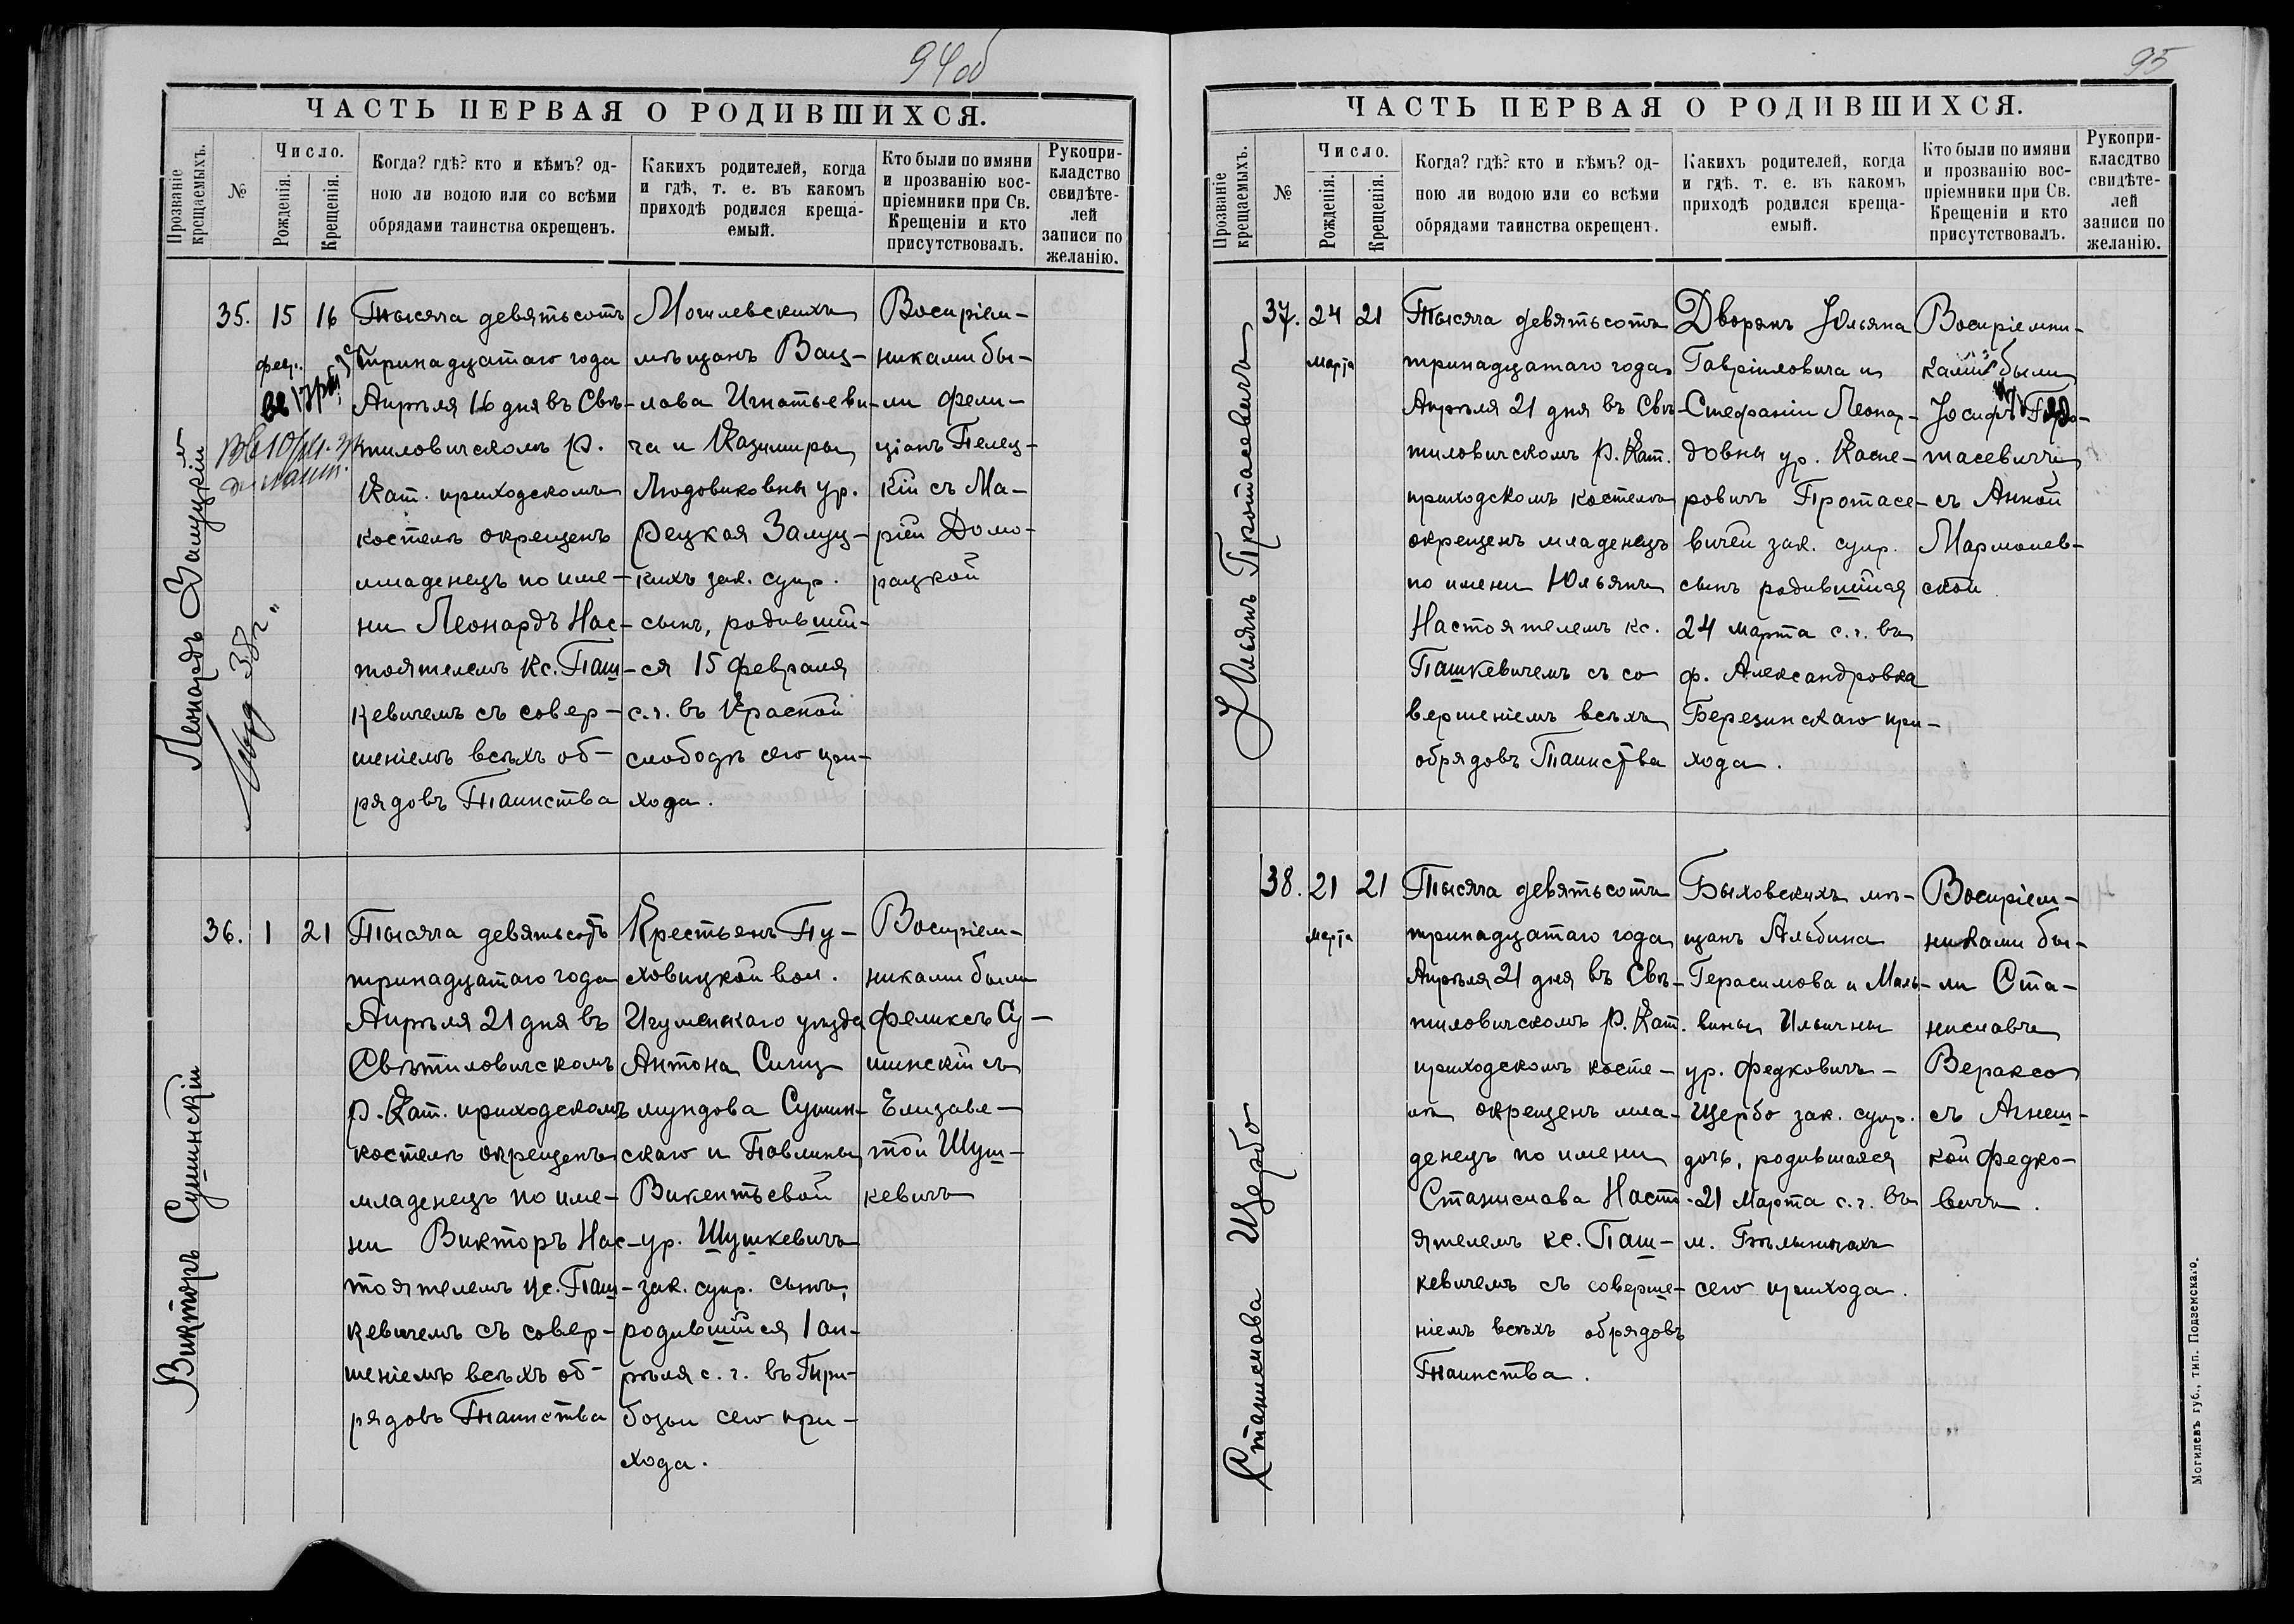 94об
ЧАСТЬ ПЕРВАЯ О РОДИВШИХСЯ.
Прозваніе
крещаемыхъ.
№
Число.
Рожденія.
Крещенія.
Когда? гдѣ? кто и кѣмъ? од-
ною ли водою или со всѣми
обрядами таинства окрещенъ.
Какихъ родителей, когда
и гдѣ, т. е. въ какомъ
приходѣ родился креща-
емый.
Кто были по имяни
и прозванію вос-
пріемники при Св.
Крещеніи и кто
присутствовалъ.
Рукопри-
кладство
свидѣте-
лей
записи по
желанію.
Леонардъ Залуцкій
35.
15
февр.
16
Тысяча девятьсотъ
тринадцатаго года
Апрѣля 16 дня въ Свѣ-
тиловичскомъ р.
Кат. приходскомъ
костелѣ окрещенъ
младенецъ по име-
ни Леонардъ Нас-
тоятелемъ Кс. Паш-
кевичемъ съ совер-
шеніемъ всѣхъ об-
рядовъ Таинства
Могилевскихъ
мѣщанъ Вац-
лава Игнатьеви-
ча и Казимиры
Людовиковны ур.
Рецкая Залуц-
кихъ зак. супр.
сынъ, родивший-
ся 15 февраля
с.г. въ Красной
слободѣ сего при-
хода.
Воспріем-
никами бы-
ли Фели-
ціанъ Пелец-
кій съ Ма-
ріей Домо-
рацкой
Викторъ Сушинскій
36.
1
21
Тысяча девятьсотъ
тринадцатаго года
Апрѣля 21 дня въ
Свѣтиловичскомъ
р. Кат. приходскомъ
костелѣ окрещенъ
младенецъ по име-
ни Викторъ Нас-
тоятелемъ кс. Паш-
кевичемъ съ совер-
шеніемъ всѣхъ об-
рядовъ Таинства
Крестьянъ Пу-
ховицкой вол.
Игуменскаго уѣзда
Антона Сигиз
мундова Сушин-
скаго и Павлины
Викентьевой
ур. Шушкевичъ
зак. супр. сынъ,
родившійся 1 ап-
рѣля с. г. въ Гри-
бозы сего при-
хода.
Воспріем-
никами были
Феликсъ Су-
шинскій съ
Елизаве-
той Шуш-
кевичъ
95
ЧАСТЬ ПЕРВАЯ О РОДИВШИХСЯ.
Прозваніе
крещаемыхъ.
№
Число.
Рожденія.
Крещенія.
Когда? гдѣ? кто и кѣмъ? од-
ною ли водою или со всѣми
обрядами таинства окрещенъ.
Какихъ родителей, когда
и гдѣ. т. е. въ какомъ
приходѣ родился креща-
емый.
Кто были по имяни
и прозванію вос-
пріемники при Св.
Крещеніи и кто
присутствовалъ.
Рукопри-
класдтво
свидѣте-
лей
записи по
желанію.
Юліянъ Протасевичъ
37.
24
марта
21
Тысяча девятьсотъ
тринадцатаго года
Апрѣля 21 дня въ Свѣ-
тиловичскомъ р. Кат.
приходскомъ костелѣ
окрещенъ младенецъ
по имени Юльянъ
Настоятелемъ кс.
Пашкевичемъ съ со
вершеніемъ всѣхъ
обрядовъ Таинства
Дворянъ Юльяна
Гавріиловича и
Стефаніи Леонар-
довны ур. Каспе-
ровичъ Протасе-
вичей зак. супр.
сынъ родившійся
24 марта с. г. въ
ф. Александровка
Березинскаго при-
хода.
Воспріемни-
ками были
Іосифъ
тасевичъ
съ Анной
Мармолев-
ской
Станислава Щербо
38.
21
марта
21
Тысяча девятьсотъ
тринадцатаго года
Апрѣля 21 дня въ Свѣ-
тиловичскомъ р. Кат.
приходскомъ косте-
лѣ окрещенъ мла-
денецъ по имени
Станислава Насто-
ятелемъ кс. Паш-
кевичемъ съ соверше-
ніемъ всѣхъ обрядовъ
Таинства.
Быховскихъ мѣ-
щанъ Альбина
Герасимова и Маль-
вины Ильичны
ур. Федковичъ-
Щербо зак. супр.
дочь, родившаяся
21 Марта с. г. въ
м. Бѣлыничахъ
сего прихода.
Воспріем-
никами бы-
ли Ста-
ниславъ
Вераксо
съ Агнеш-
кой Федко-
вичъ.
Могилевъ губ., тип. Подземскаго.